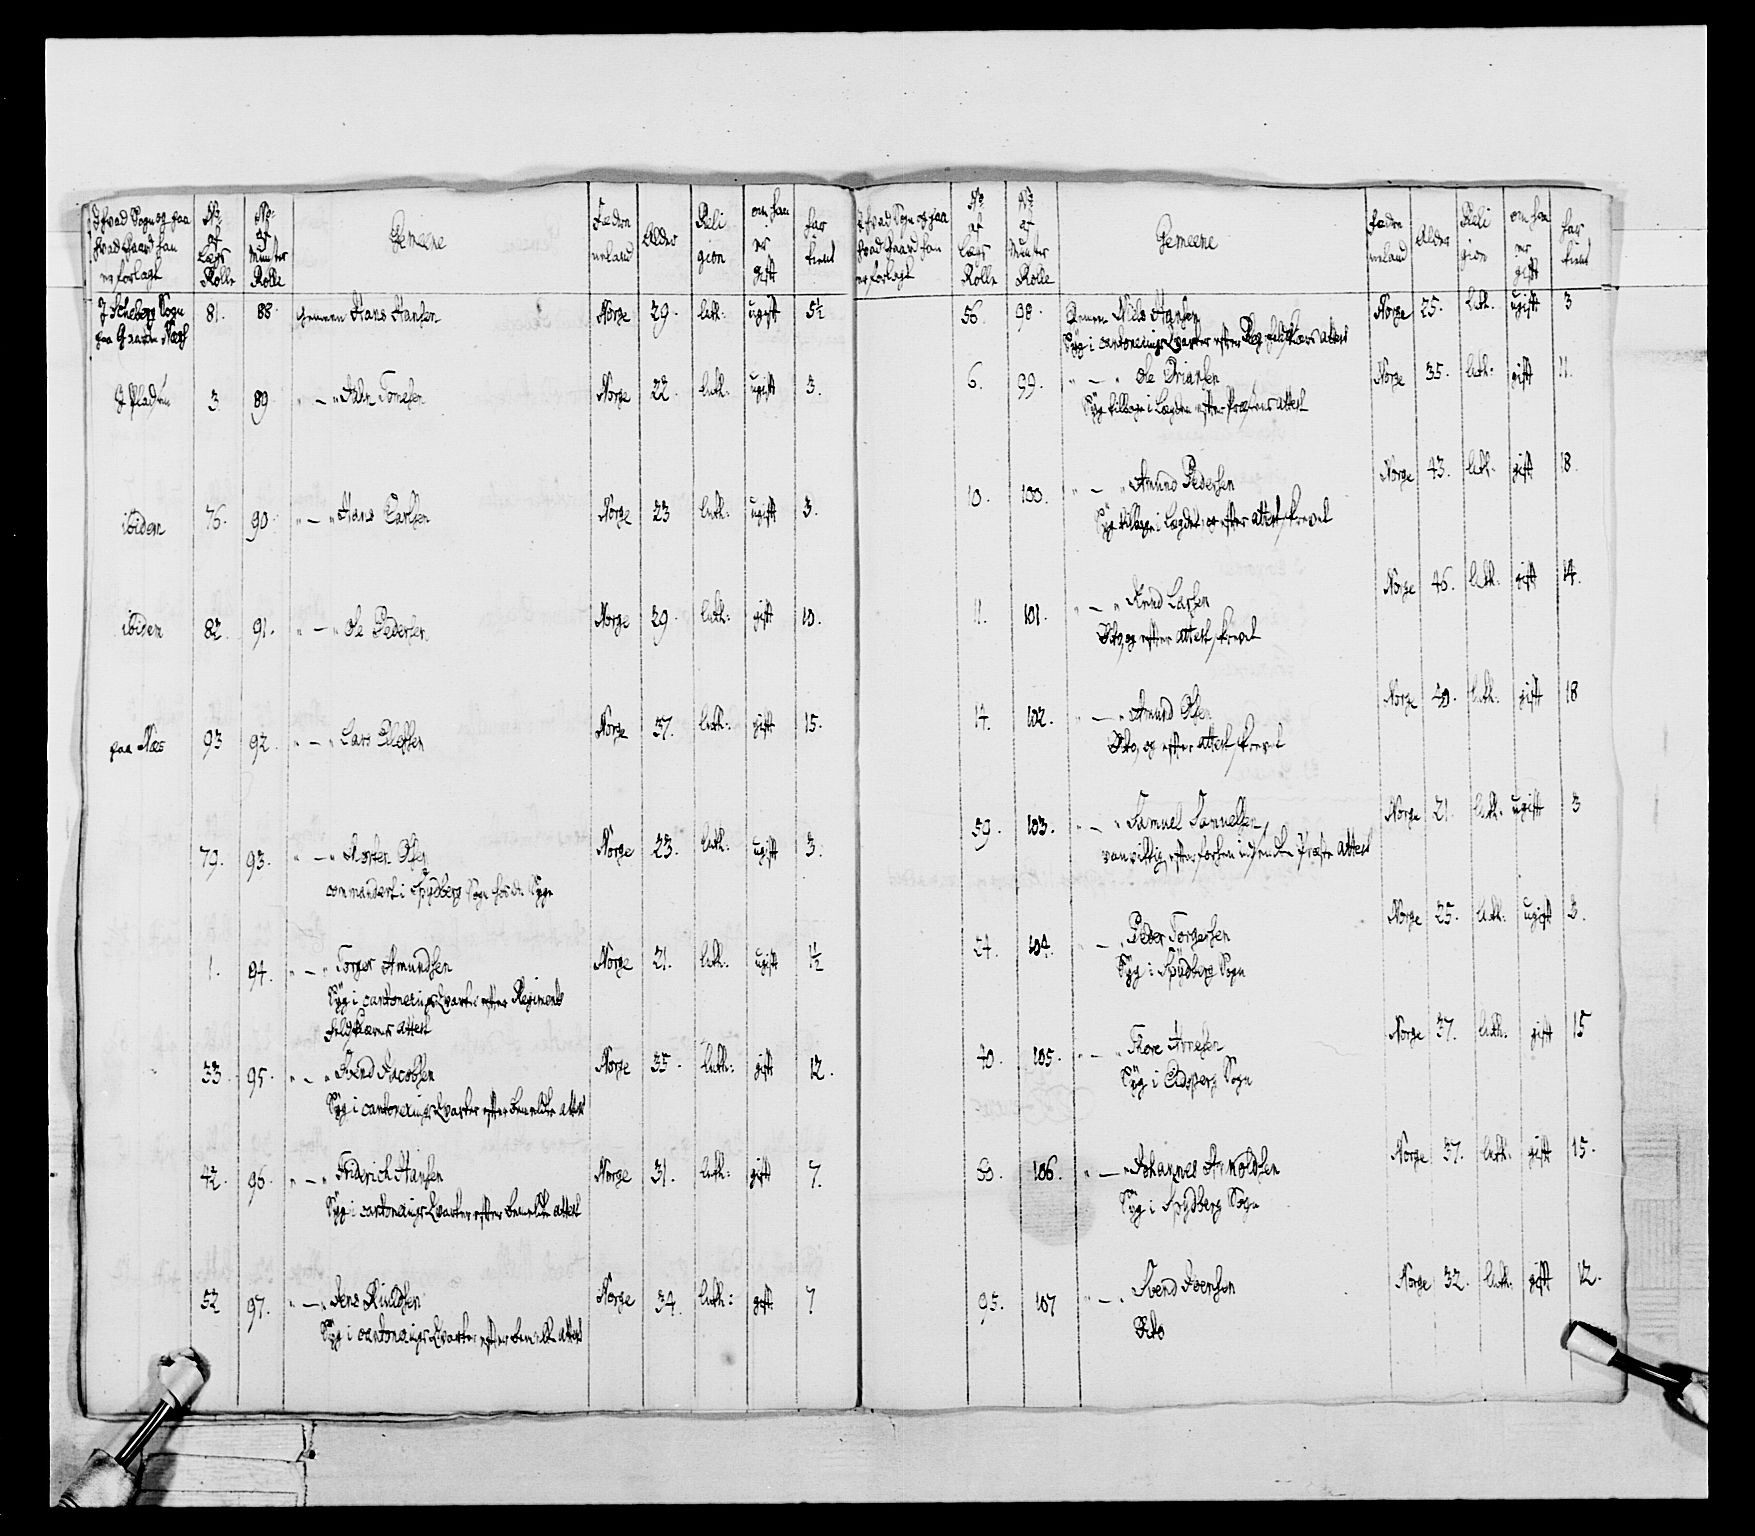 I hvad Sogn og paa
hvad Gaard han
er forlagt
No
af
Lægs
Rolle
No
af
Munster
Rolle
Gemeene
Fædre
neland
Alder
Reli
gion
om han
er
gift
har
tient
I Scheberg Sogn
paa Gaarden Næss
81. 88. Gemeen Hans Hansen Norge 29. luth: ugift 5½
3 89 " — " Tomesen Norge 22. luth: ugift 3.
ibidem 76. 90. " — " Hans Carlsen Norge 23 luth: ugift 3.
ibidem 82. 91. " — " Ole Pedersen Norge 29. luth: gift 10.
paa Næs 93 92. " — " Lars Norge 37. luth: gift 15.
79. 93. " — " Morten Olsen Norge 23. luth: ugift 3.
commandert i Spydberg Sogn hos de Syge
1. 94. " — " Torger Amundsen Norge 21. luth: ugift 1½
Syg i cantonerings Qvarter efter Regiments
Feldskærers attest
33. 95. " — " Svend Jacobsen Norge 35. luth: gift 12.
Syg i cantonerings Qvarter efter bemeldte attest
42. 96. " — " Friderich Hansen Norge 31. luth: gift 7.
Syg i cantonerings Qvarter efter bemeldte attest
52 97. " — " Jens Norge 34. luth: gift 7
Syg i cantonerings Qvarter efter bemeldte attest
I hvad Sogn og paa
hvad Gaard han
er forlagt
No
af
Lægs
Rolle
No
af
Munster
Rolle
Gemeene
Fædre
neland
Alder
Reli
gion
om han
er
gift
har
tient
56. 98. Gemeen Niels Hansen Norge 25. luth. ugift 3
Syg i cantonerings Qvarter efter Reg. feldskærs attest
6. 99. " — " Ole Norge 35. luth: gift 11.
Syg tilbage i Lægden efter Præstens attest
10. 100. " — " Amund Pedersen Norge 43. luth. gift 18.
Syg tilbage i Lægden, og efter attest skrevet
11. 101. " — " Knud Larsen Norge 46. luth. gift 14.
Dito, og efter attest skrevet
14. 102. " — " Amund Olsen Norge 40. luth. gift 18
Dito, og efter attest skrevet
59. 103. " — " Samuel Samuelsen, Norge 21. luth. ugift 3
vanvittig, efter forhen indsendte Præste attest
54. 104. " — " Peder Torgersen Norge 25. luth. ugift 3.
Syg i Spydberg Sogn
40. 105. " — " Tore Arnesen Norge 37. luth. gift 15
Syg i Eidsberg Sogn
106. " — " Johannes Arnoldsen Norge 37. luth. gift 15.
Syg i Spydberg Sogn
95. 107 " — " Svend Svensen Norge 32. luth. gift 12.
Dito